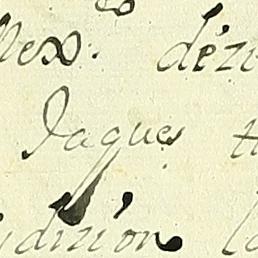 lex. déz
Jaques t
idizion l